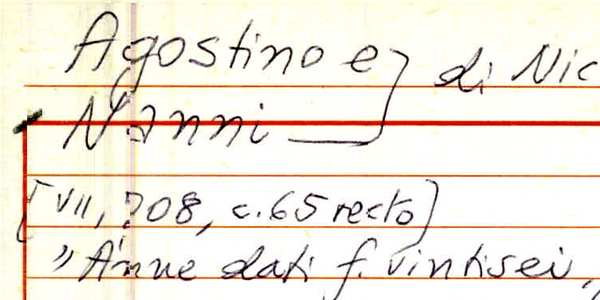 Agostino e } di Nic
Nanni
[VII, 708, c. 65 recto]
"Anne dati f. vintisei,